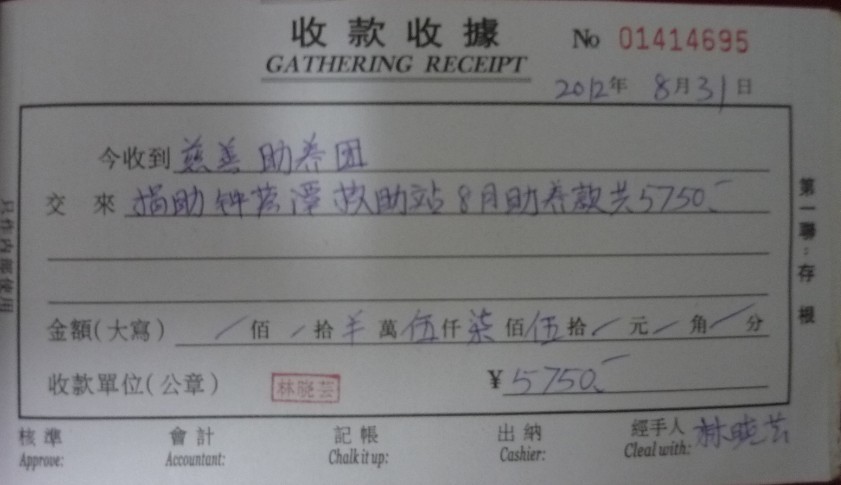 收款收據 No 01414695
GATHERING RECEIPT
2012年 8月31日
今收到 慈善助养团
交來 捐助钟落潭救助站8月助养款共5750.-
金額(大寫) / 佰 / 拾 羊 萬 伍 仟 柒 佰 伍 拾 / 元 / 角 / 分
收款單位(公章) 林晓芸 ¥ 5750.-
核準 會計 記帳 出納 經手人 林晓芸
Approve: Accountant: Chalk it up: Cashier: Cleal with:
第一聯:存根
只作內部使用